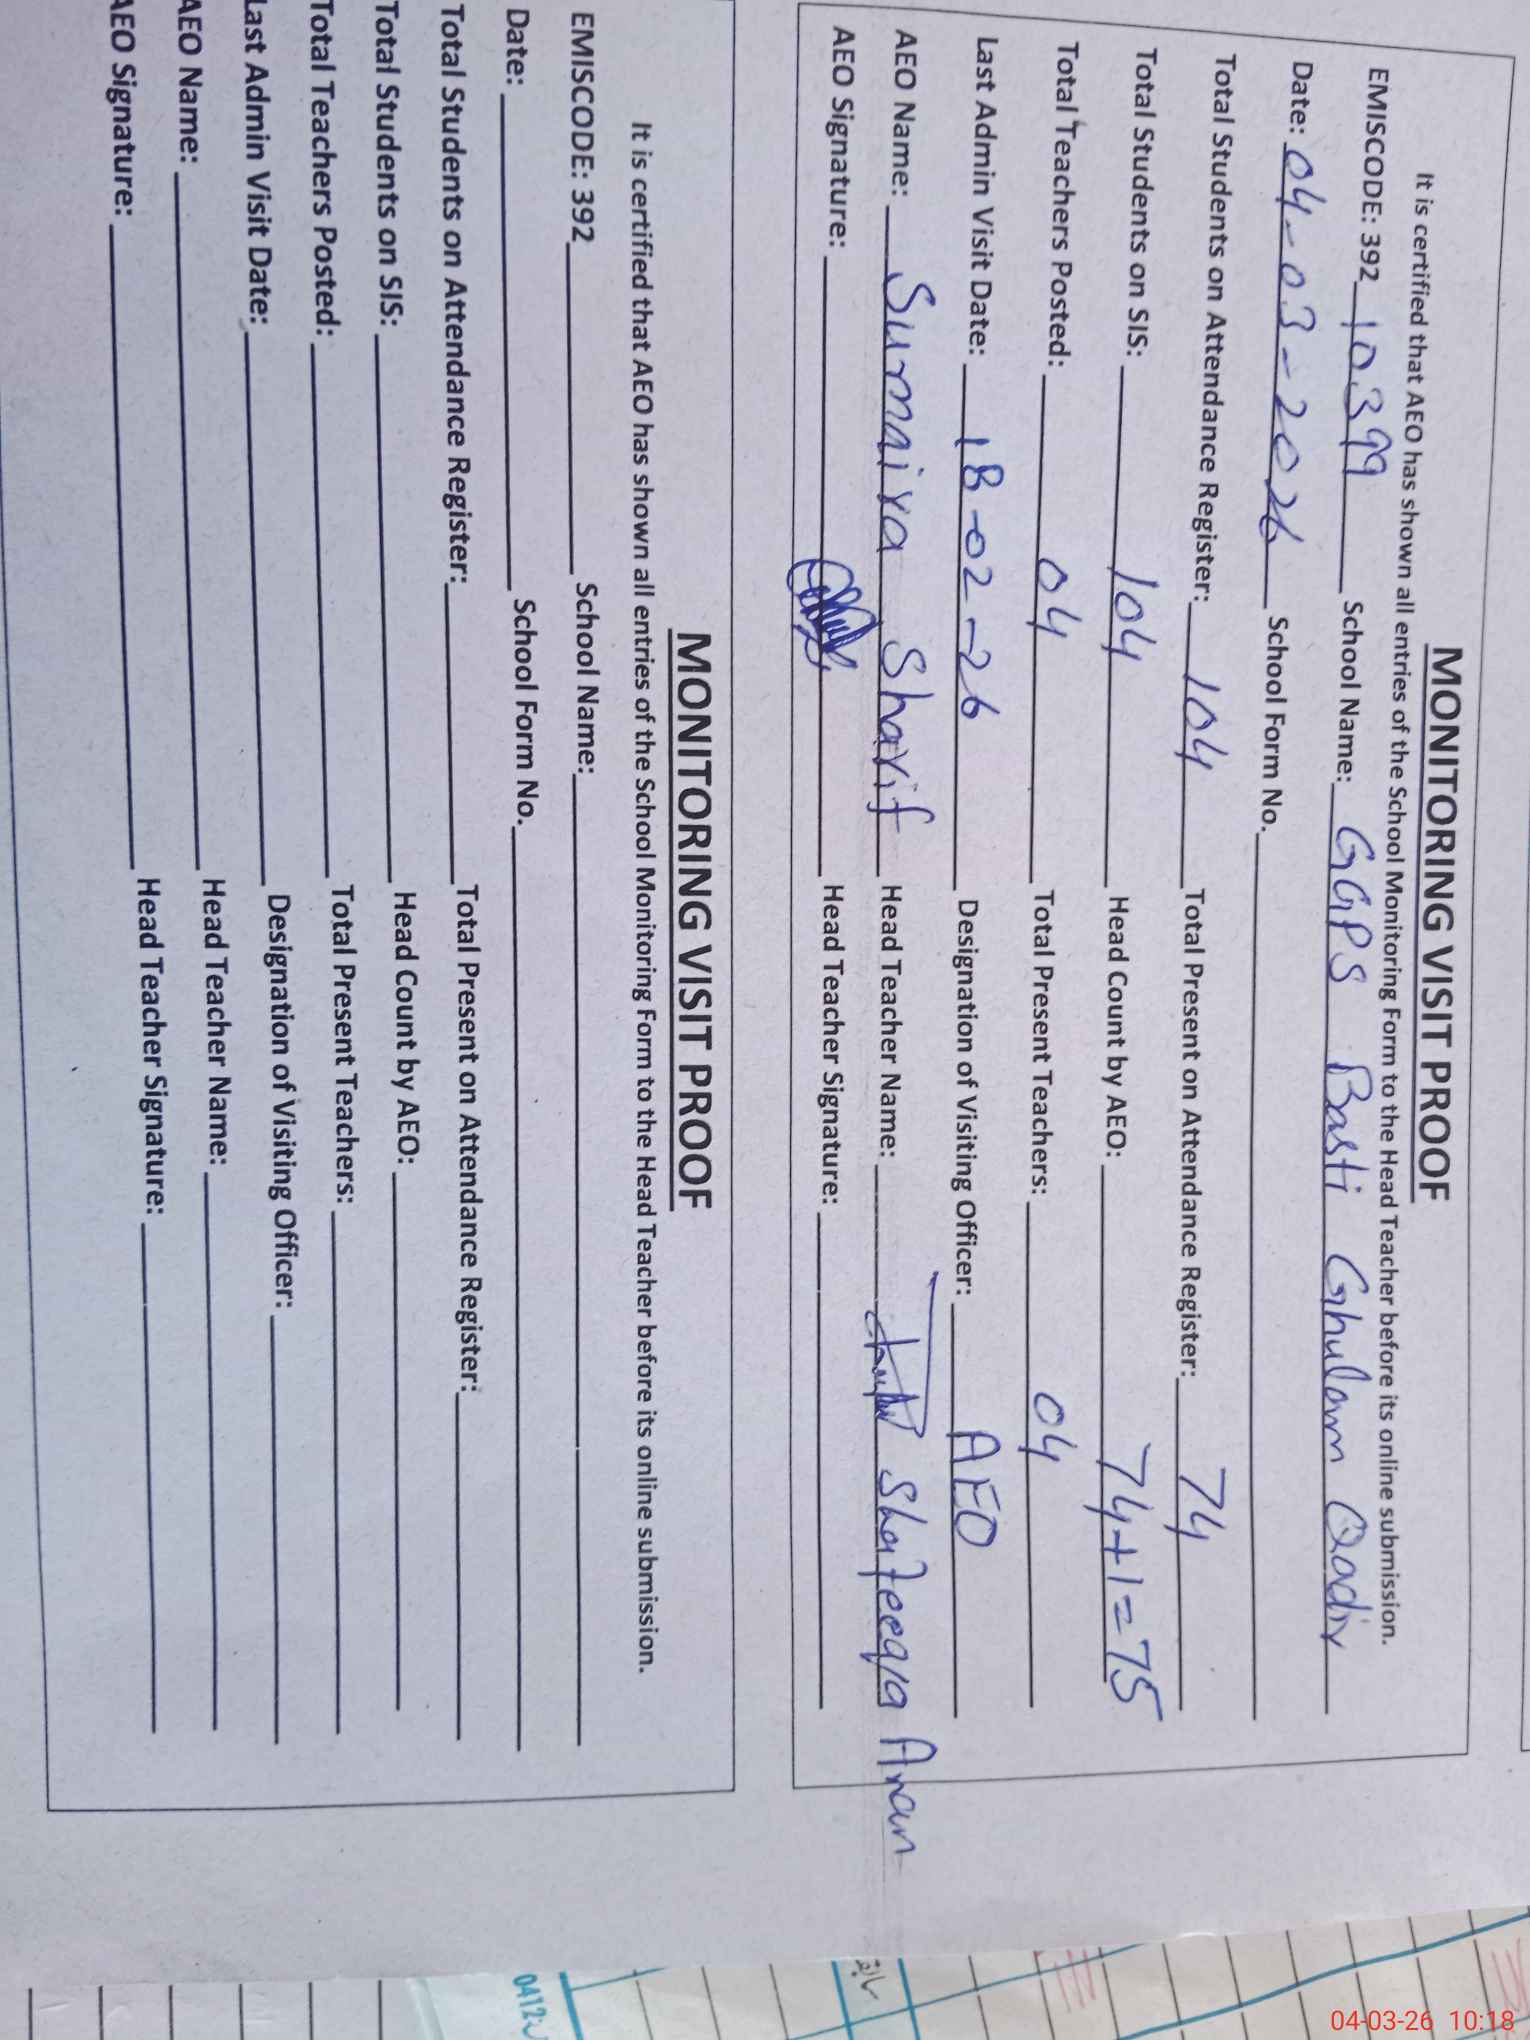 MONITORING VISIT PROOF
It is certified that AEO has shown all entries of the School Monitoring Form to the Head Teacher before its online submission.
EMISCODE: 392 10399 School Name: GGPS Basti Ghulam Qadir
Date: 04-03-2026 School Form No.
Total Students on Attendance Register: 104 Total Present on Attendance Register: 74
Total Students on SIS: 104 Head Count by AEO: 74+1=75
Total Teachers Posted: 04 Total Present Teachers: 04
Last Admin Visit Date: 18-02-26 Designation of Visiting Officer: AEO
AEO Name: Sumaira Sharif Head Teacher Name: Shafeeqa
AEO Signature: Head Teacher Signature:
MONITORING VISIT PROOF
It is certified that AEO has shown all entries of the School Monitoring Form to the Head Teacher before its online submission.
EMISCODE: 392 School Name:
Date: School Form No.
Total Students on Attendance Register: Total Present on Attendance Register:
Total Students on SIS: Head Count by AEO:
Total Teachers Posted: Total Present Teachers:
Last Admin Visit Date: Designation of Visiting Officer:
AEO Name: Head Teacher Name:
AEO Signature: Head Teacher Signature:
04-03-26 10:18